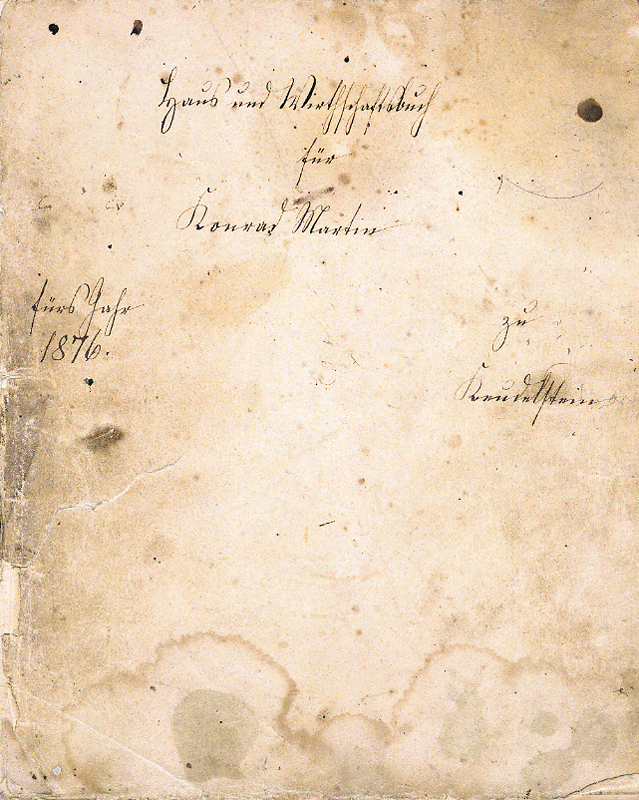 Haus und Wirthschaftsbuch
für
Konrad Martin
fürs Jahr
1876.
zu
Keudelstein